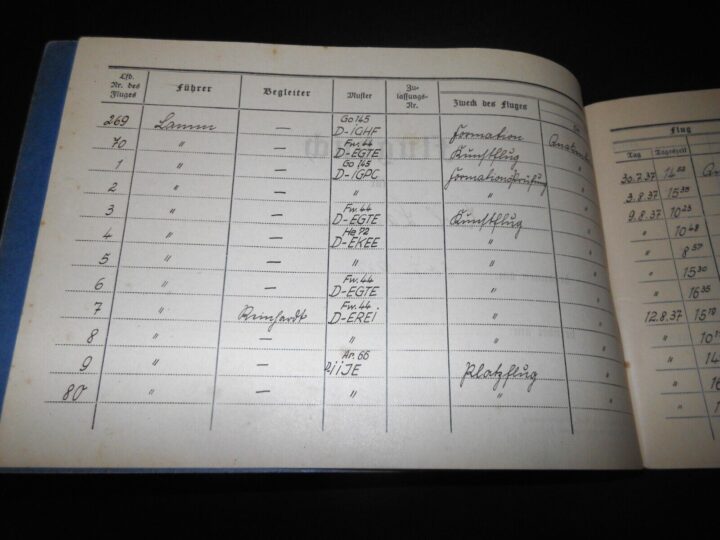 Lfd. Nr. des Fluges Führer Begleiter Muster Zulassungs-Nr. Zweck des Fluges
269 Lamm — Go 145 D-IGHF Formation
70 " — Fw. 44 D-EGTE Kunstflug "
1 " — Go 145 D-IGPC Formationsprüfung "
2 " — " " "
3 " — Fw. 44 D-EGTE Kunstflug
4 " — He 72 D-EKEE "
5 " — " "
6 " — Fw. 44 D-EGTE "
7 " Reinhardt Fw. 44 D-EREI "
8 " — " "
9 " — Ar. 66 IIJE Platzflug
80 " — " "
Flug
Tag Tageszeit
30.7.37 14
3.8.37 15 35
9.8.37 10 23
" 10 48
" 8 57
" 15 30
" 16 35
12.8.37 15
" 10
" 14
" 16
"